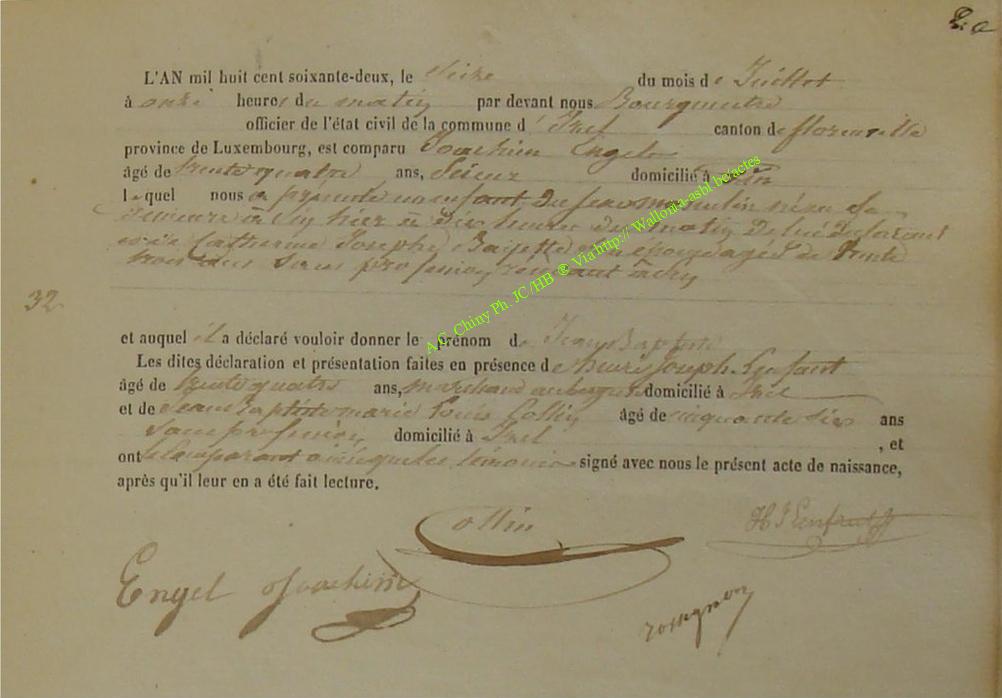 L'AN mil huit cent soixante-deux, le Seize du mois de Juillet
à onze heures du matin par devant nous Bourgmestre
officier de l'état civil de la commune d'Izel canton de florenville
province de Luxembourg, est comparu Joachim Engel
âgé de trente quatre ans, domicilié à
lequel nous a présenté un enfant du sexe masculin né en sa
demeure à hier à dix heures du matin de lui déclarant
et de Catherine Josephe son épouse agée de trente
trois ans sans profession
32
et auquel il a déclaré vouloir donner le prénom de Jean Baptiste
Les dites déclaration et présentation faites en présence de Henri Joseph Lenfant
âgé de trente quatre ans, marchand aubergiste domicilié à Izel
et de Jean Baptiste marie Louis Collin âgé de cinquante six ans
sans profession domicilié à Izel , et
ont le comparant ainsi que les témoins signé avec nous le présent acte de naissance,
après qu'il leur en a été fait lecture.
Collin
H J Lenfant
Engel Joachim
rossignon
A.C. Chiny Ph. JC/HB ® Via http:// Wallonia-asbl.be/actes